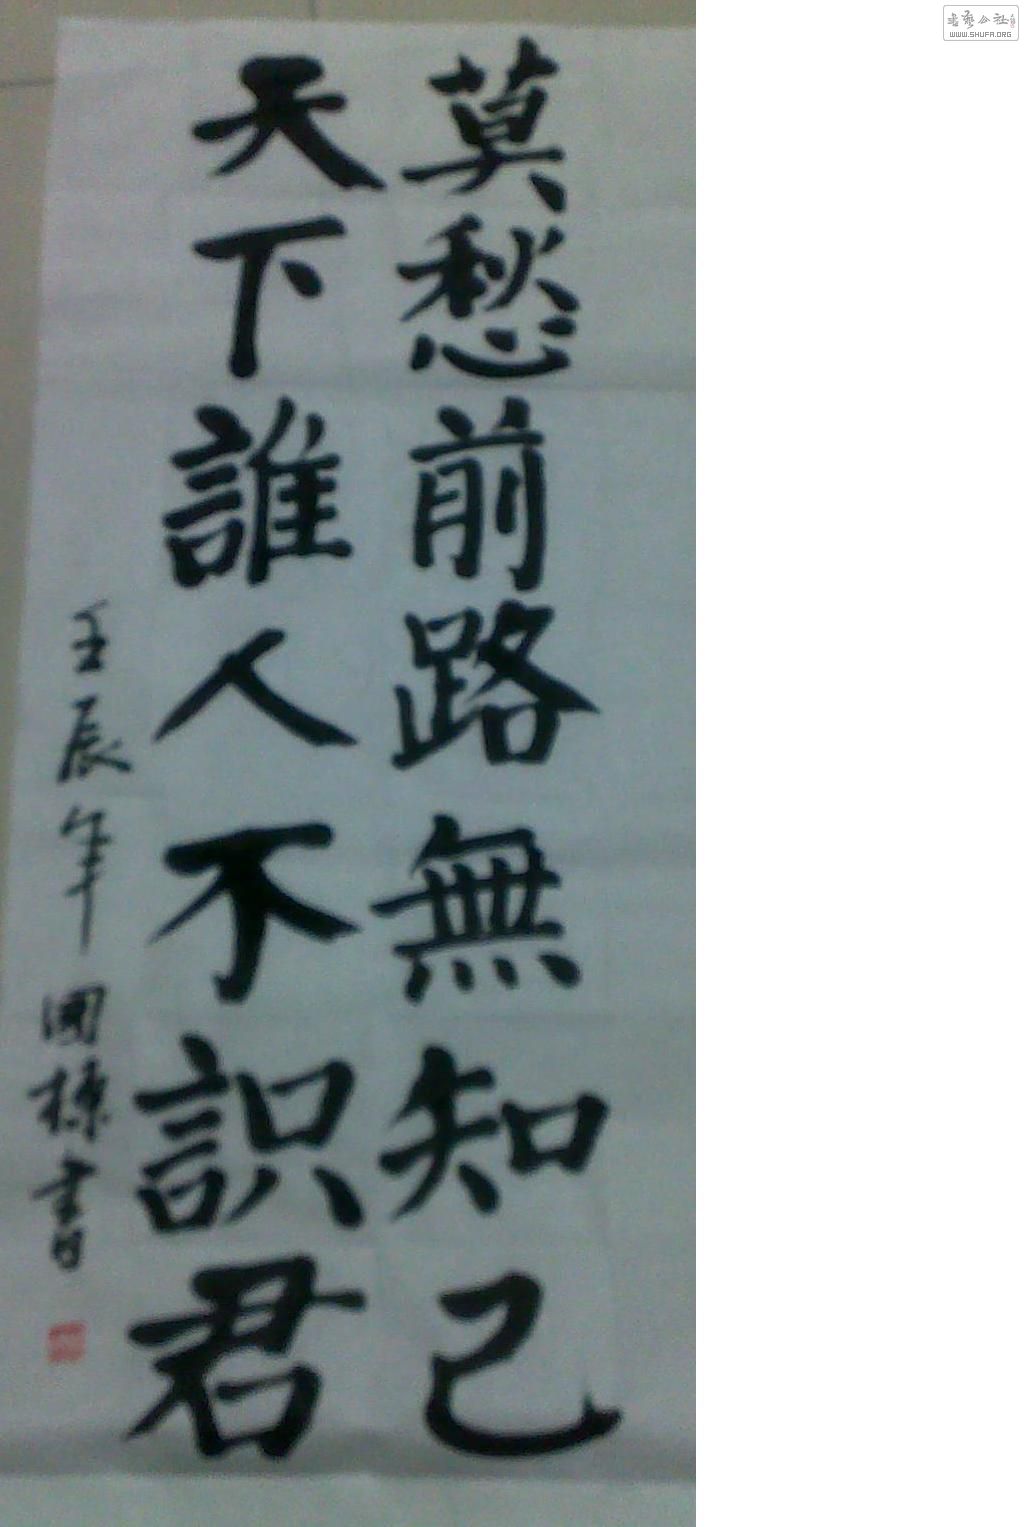 莫愁前路無知己
天下誰人不识君
壬辰年國標書
书艺公社
WWW.SHUFA.ORG